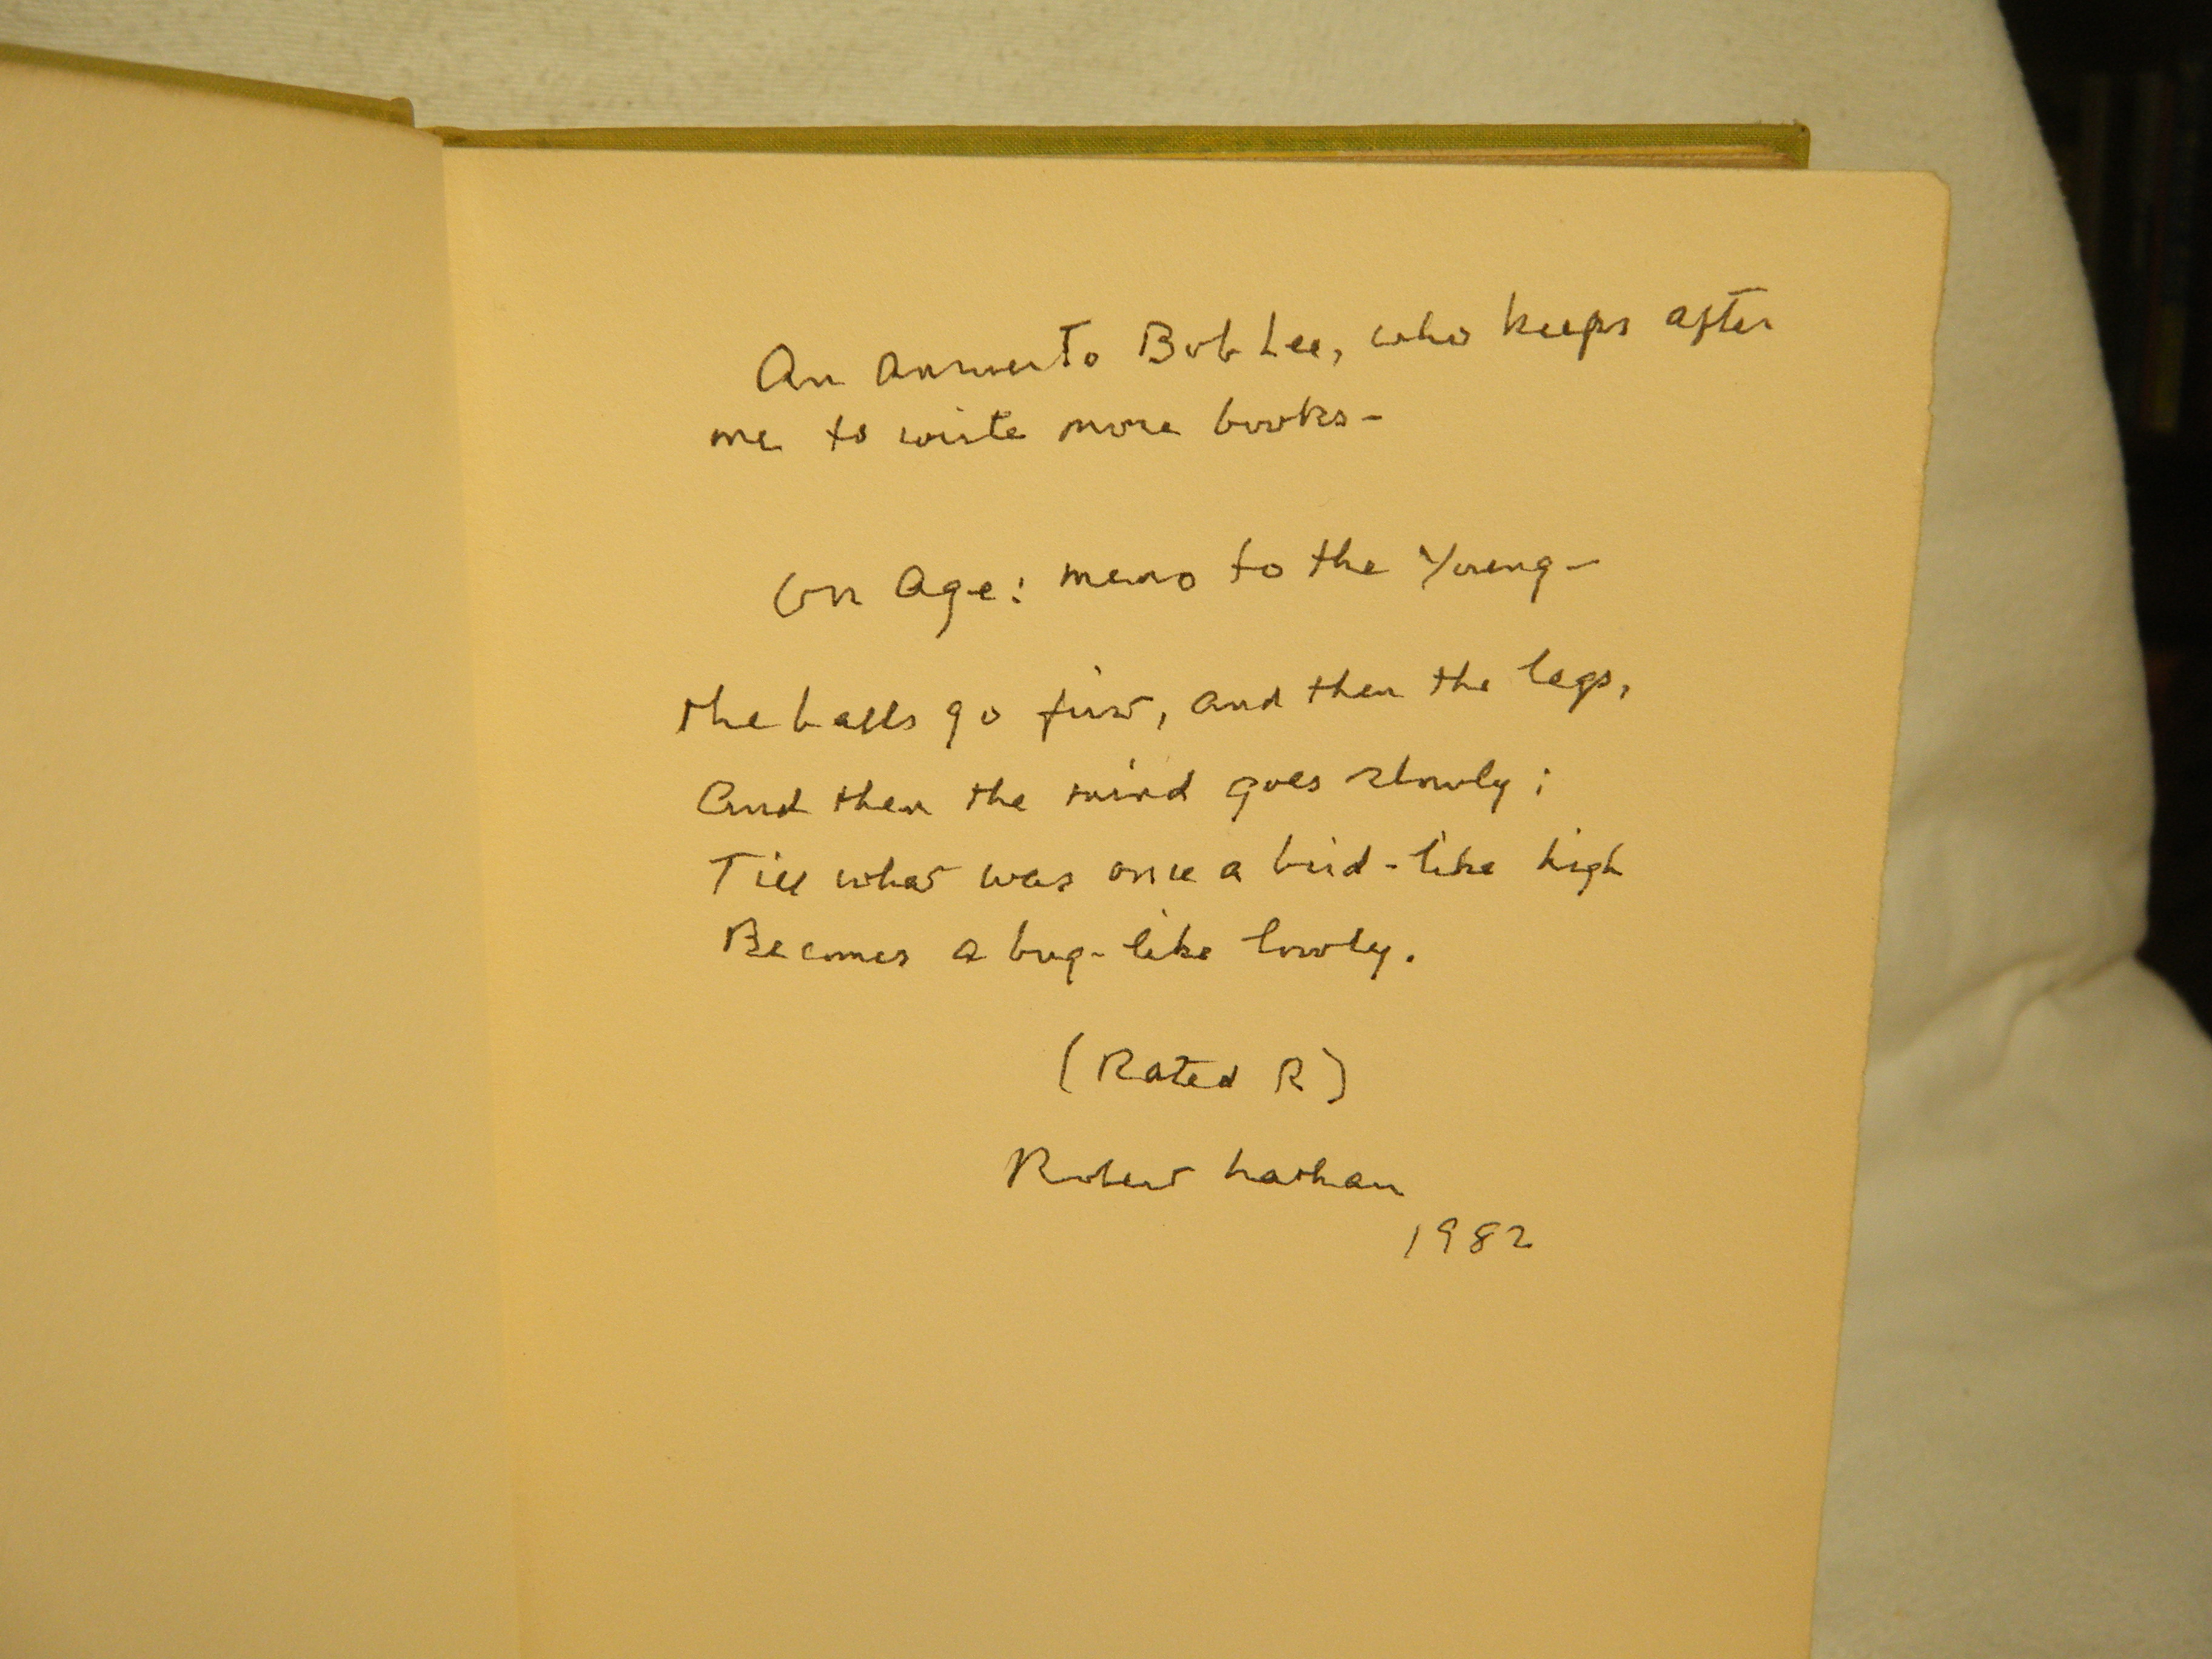 An answer to Bob Lee, who keeps after
me to write more books -
On Age: memo to the Young -
The balls go first, and then the legs,
And then the mind goes slowly;
Till what was once a bird-like high
Becomes a bug-like lowly.
(Rated R)
Robert Nathan
1982